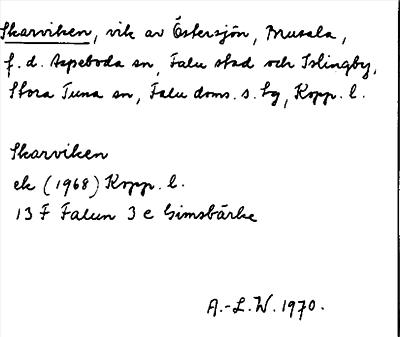 Skarviken, vik av Östersjön, Musala,
f.d. Aspeboda sn, Falu stad och Islingby,
Stora Tuna sn, Falu doms. s. hg, Kopp. l.
Skarviken
ek (1968) Kopp. l.
13 F Falun 3 e Gimsbärke
A.-L.W. 1970.